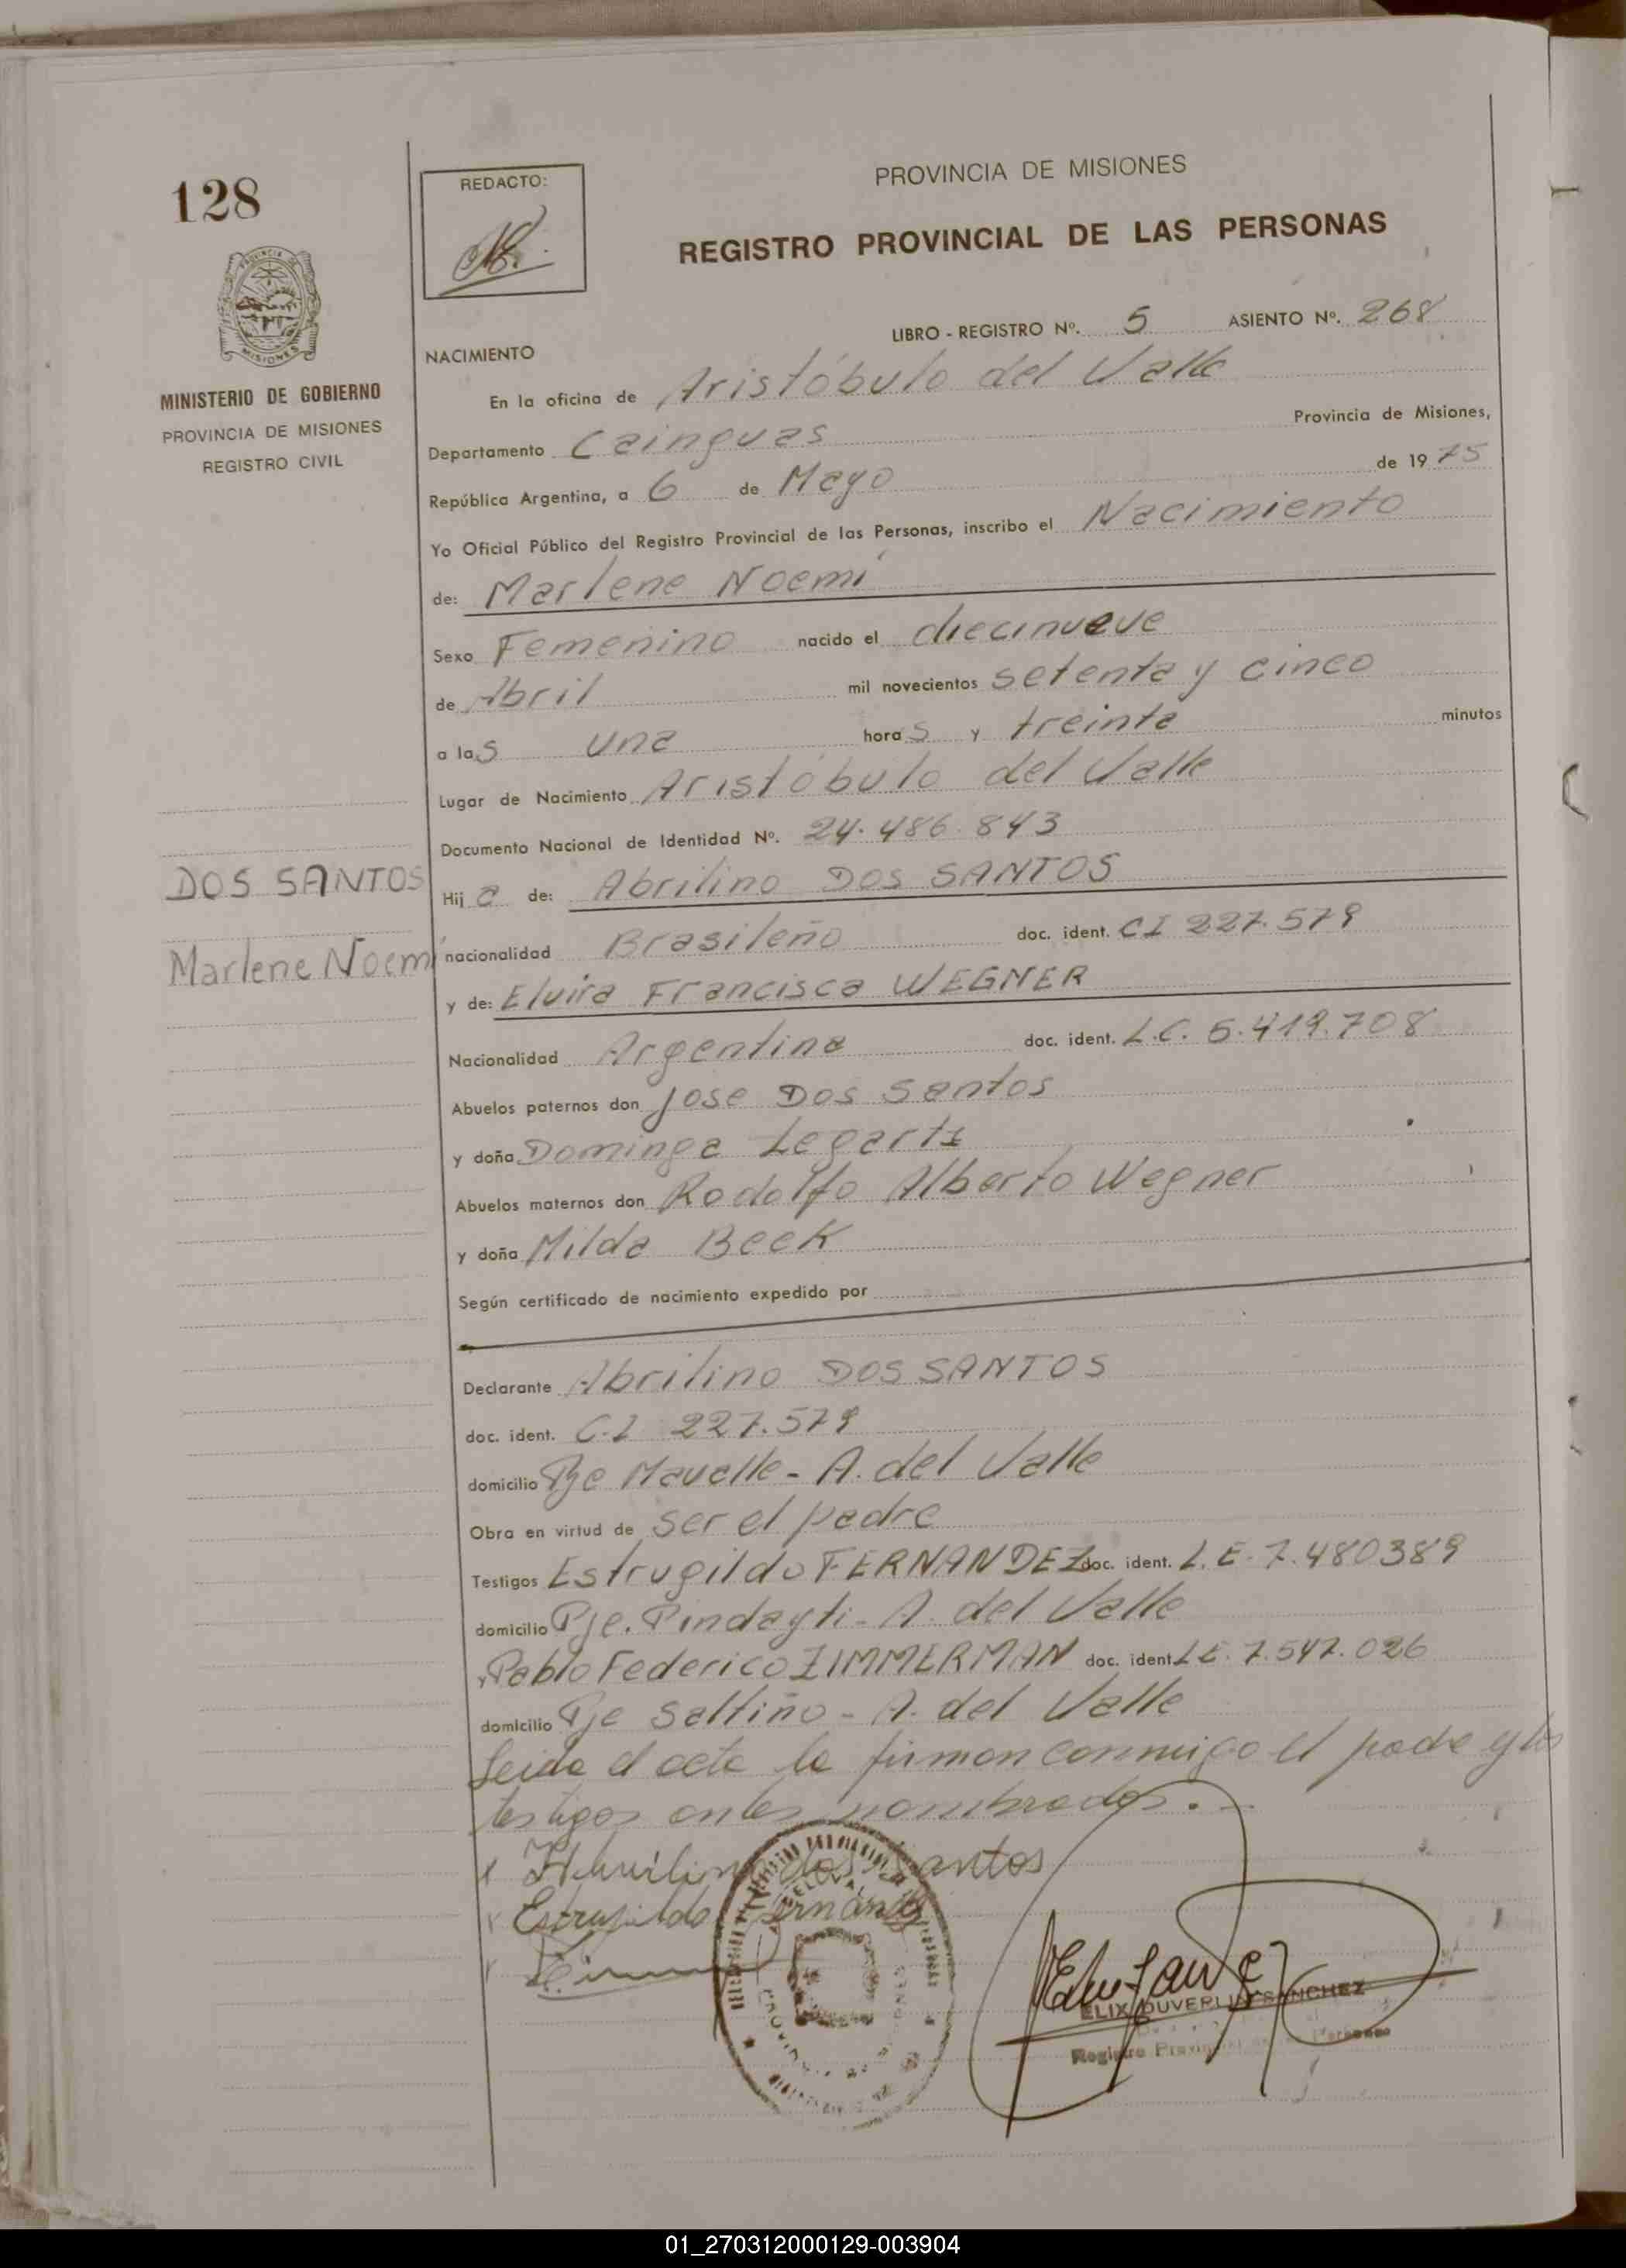 128
REDACTO:
PROVINCIA DE MISIONES
REGISTRO PROVINCIAL DE LAS PERSONAS
LIBRO - REGISTRO Nº. 5 ASIENTO Nº. 268
MINISTERIO DE GOBIERNO
PROVINCIA DE MISIONES
REGISTRO CIVIL
NACIMIENTO
En la oficina de Aristóbulo del Valle
Departamento Cainguas Provincia de Misiones,
República Argentina, a 6 de Mayo de 19 75
Yo Oficial Público del Registro Provincial de las Personas, inscribo el Nacimiento
de: Marlene Noemí
Sexo Femenino nacido el diecinueve
de Abril mil novecientos setenta y cinco
a las una horas y treinta minutos
Lugar de Nacimiento Aristóbulo del Valle
Documento Nacional de Identidad Nº. 24.486.843
DOS SANTOS
Marlene Noemí
Hija de: Abrilino DOS SANTOS
nacionalidad Brasileño doc. ident. CI 227.579
y de: Elvira Francisca WEGNER
Nacionalidad Argentina doc. ident. L.C. 5.419.708
Abuelos paternos don Jose Dos Santos
y doña Dominga
Abuelos maternos don Rodolfo Alberto Wegner
y doña Milda Beck
Según certificado de nacimiento expedido por
Declarante Abrilino DOS SANTOS
doc. ident. C.I 227.579
domicilio Pje - A. del Valle
Obra en virtud de ser el padre
Testigos Estrugildo FERNANDEZ doc. ident. L.E. 7.480389
domicilio Pje. Pindayti - A. del Valle
Pablo Federico ZIMMERMAN doc. ident. LE. 7.547.026
domicilio Pje Saltiño - A. del Valle
Leida el acta la firman conmigo el padre y los
testigos antes nombrados.-
dos Santos
Estrugildo Fernández
SANCHEZ
Registro
01_270312000129-003904